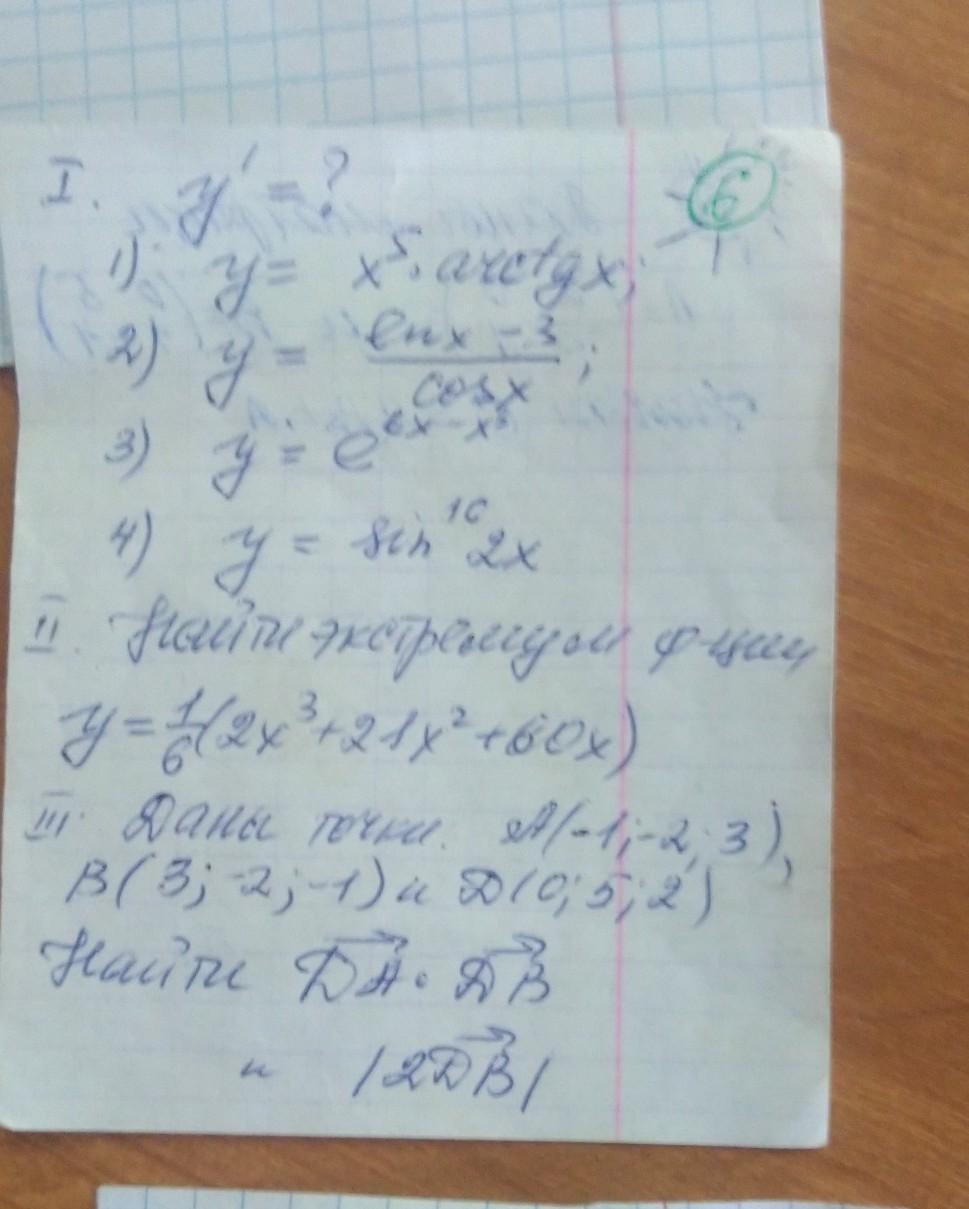 I. y' = ? 6
1) y = x⁵ · arctg x;
2) y = (ln x - 3)/(cos x);
3) y = e^(6x - x³)
4) y = sin¹⁰ 2x
II. Найти экстремум ф-ции
y = 1/6(2x³ + 21x² + 60x)
III. Даны точки A(-1; -2; 3),
B(3; -2; -1) и D(0; 5; 2)
Найти DA · DB
и |2DB|